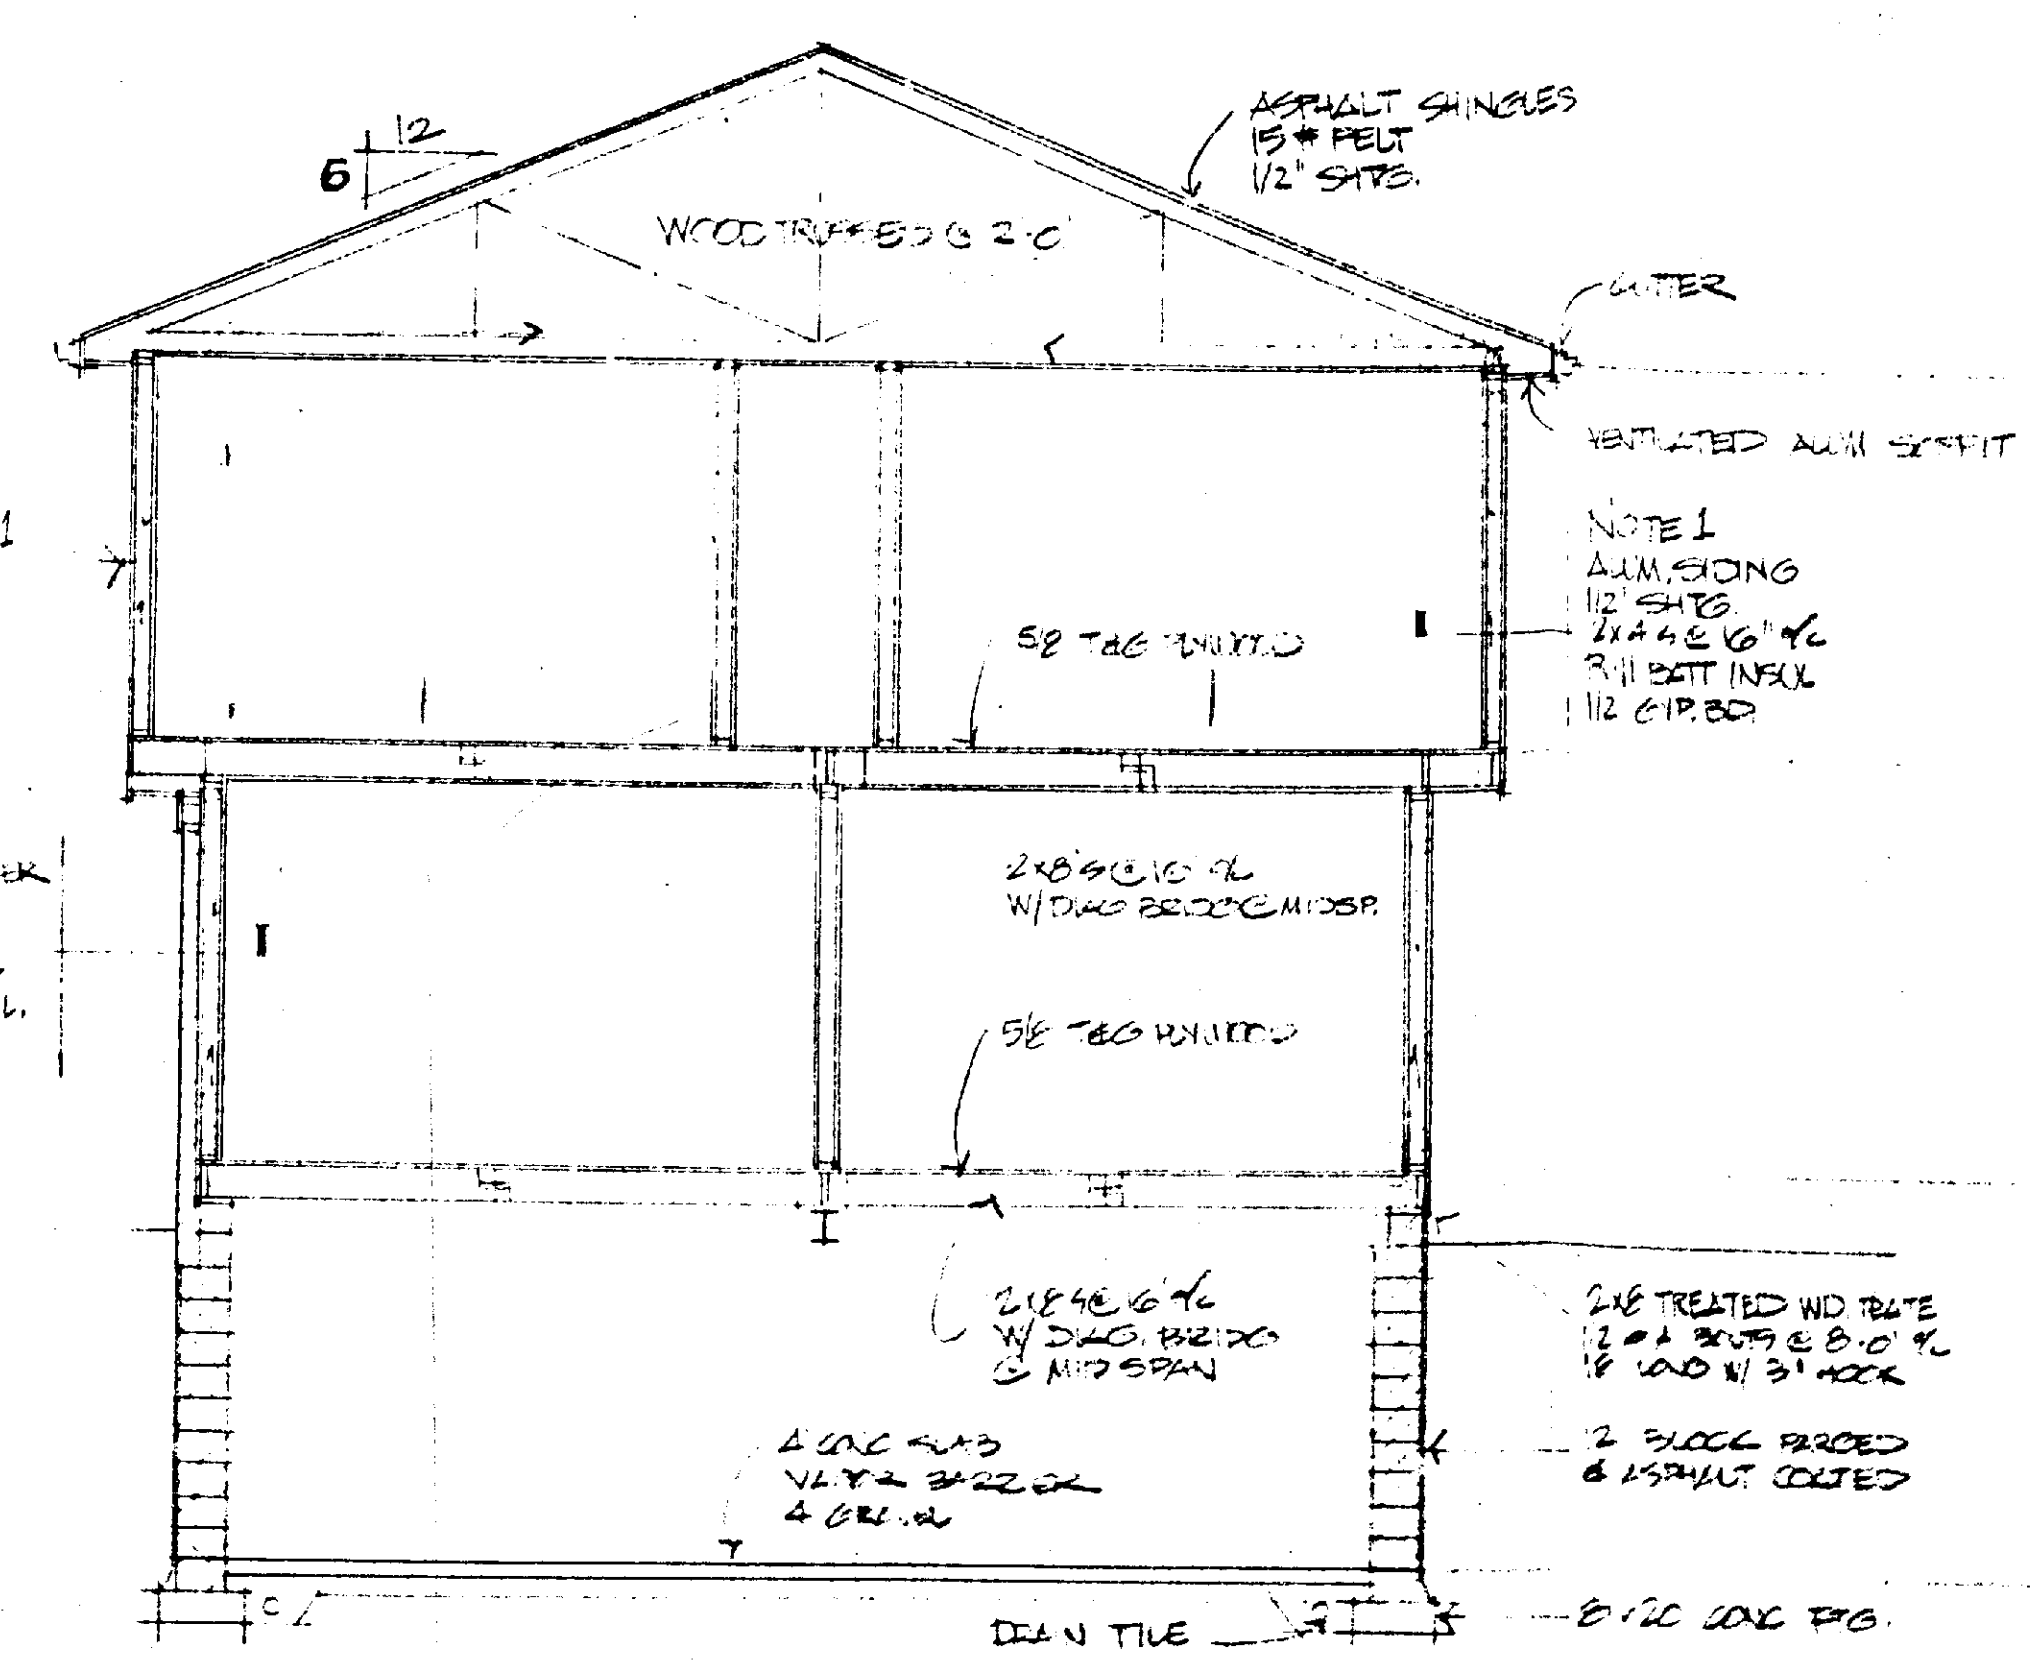 12
5
ASPHALT SHINGLES
15 # FELT
1/2" SHTG.
WOOD TRUSSED @ 2'-0"
GUTTER
VENTILATED ALUM SOFFIT
1
NOTE 1
ALUM. SIDING
1/2" SHTG.
2x4'S @ 16" o/c
R-11 BATT INSUL
1/2 GYP. BD.
5/8 T&G PLYWOOD
2x8'S @ 16" o/c
W/ DIAG BRIDG @ MIDSP.
5/8 T&G PLYWOOD
2x8'S @ 16" o/c
W/ DIAG. BRIDG
@ MID SPAN
2x8 TREATED WD. PLATE
1/2 ø A BOLTS @ 8'-0" o/c
18 LONG W/ 3" HOOK
12 BLOCK PARGED
& ASPHALT COATED
4 CONC SLAB
VAPOR BARRIER
4 GRAVEL
DRAIN TILE
8x20 CONC FTG.